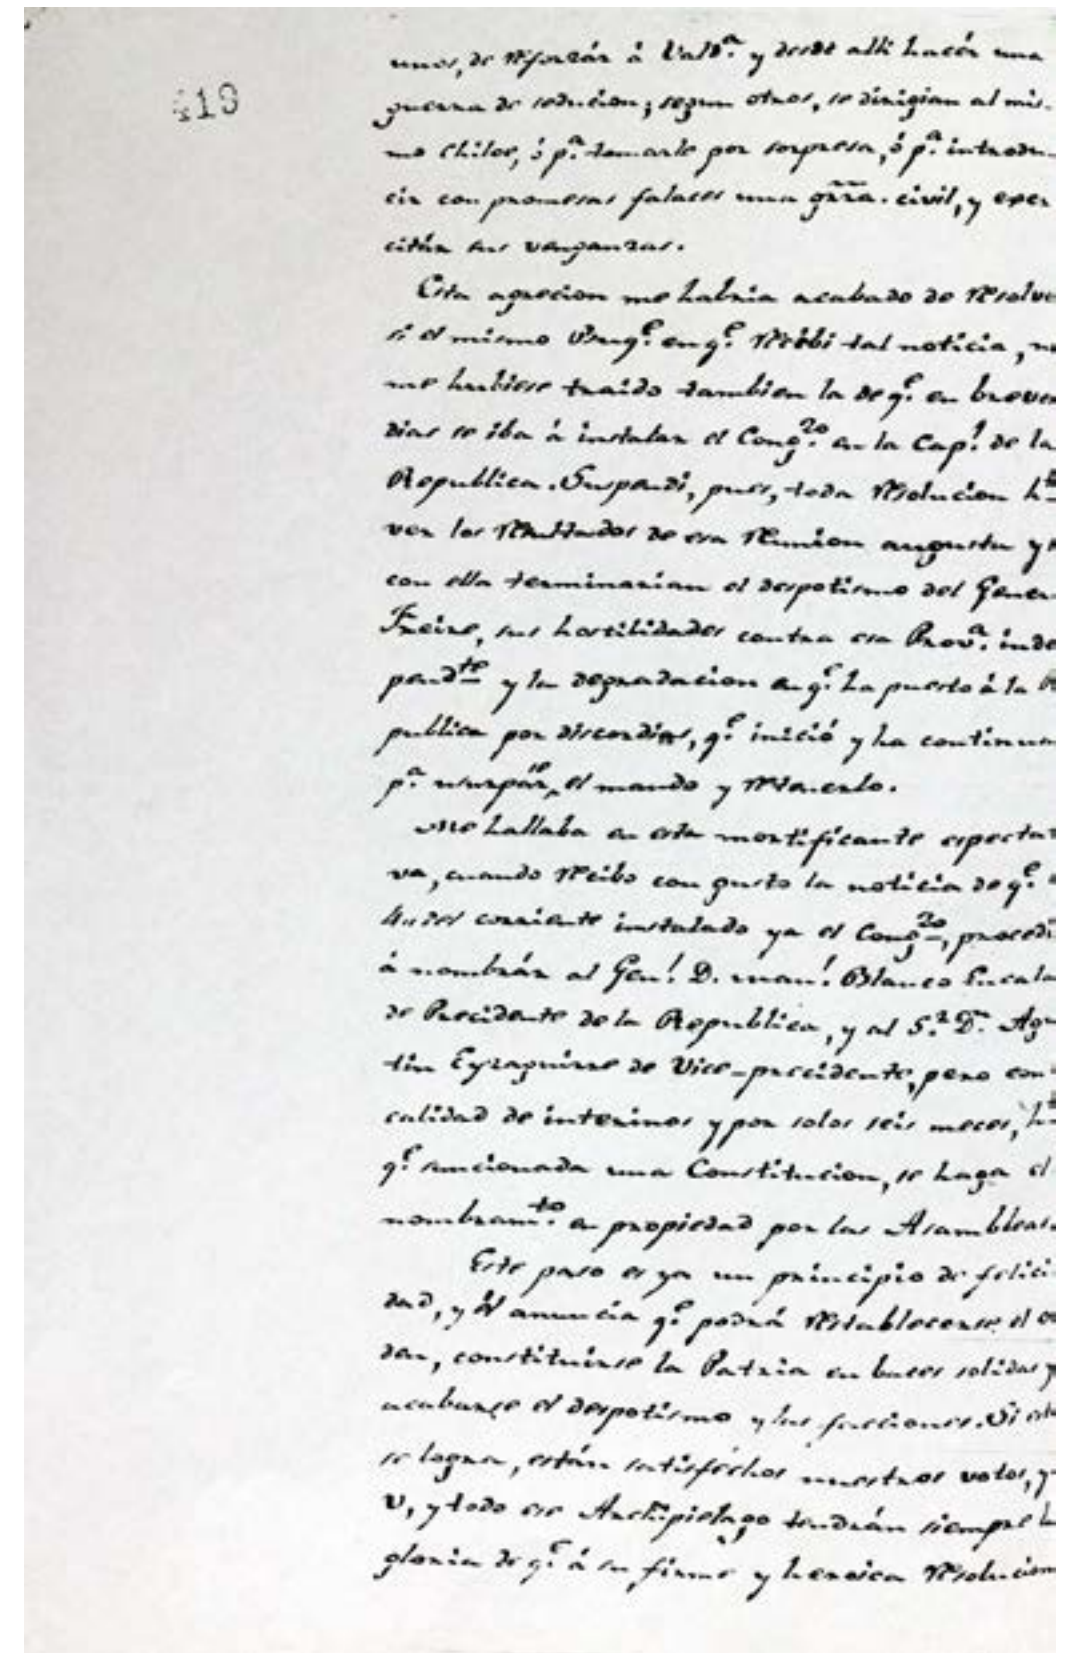 419
unos, de reforzár á Vald.ª y desde alli hacér una
guerra de seducion; segun otros, se dirigian al mis-
mo Chiloe, ó p.ª tomarle por sorpresa, ó p.ª introdu-
cir con promesas falaces una grra. civil, y exer
citár sus venganzas.
Esta agrecion me habria acabado de resolve
si el mismo Buq.e en q.e recibi tal noticia, no
me hubiese traido tambien la de q.e en breves
dias se iba á instalar el Cong.so en la Cap.l de la
Republica. Suspendi, pues, toda resolucion h.ta
ver los resultados de esa reunion augusta y s
con ella terminarian el despotismo del Gener
Freire, sus hostilidades contra esa Prov.ª inde
pend.te y la degradacion en q.e ha puesto á la R
publica por discordias, q.e inició y ha continua
p.ª usurpárse el mando y retenerlo.
Me hallaba en esta mortificante espectat
va, cuando recibo con gusto la noticia de q.e
del corriente instalado ya el Cong.so, procedi
á nombrár al Gen.l D. Man.l Blanco Encala
de Precidente de la Republica, y al S.r D.n Agu
tin Eyzaguirre de Vice-precidente, pero con
calidad de interinos y por solos seis meces, h.t
q.e sancionada una Constitucion, se haga el
nombram.to en propiedad por las Asambleas.
Este paso es ya un principio de felici
dad, y él anuncia q.e podrá restablecerse el or
den, constituirse la Patria en baces solidas y
acabarse el despotismo y las facciones. Si est
se logra, están satisfechos nuestros votos, y
V, y todo ese Archipielago tendrán siempre l
gloria de q.e á su firme y heroica resolucion